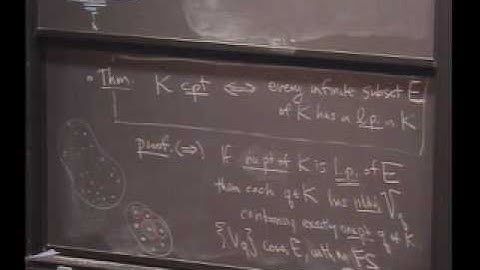 Thm. K cpt ⟺ every infinite subset E
of K has a l.p. in K
proof. (⇒) If no pt of K is l.p. of E
then each q∈K has nbhd V_q
containing exactly
{V_q} covers E, with no FS